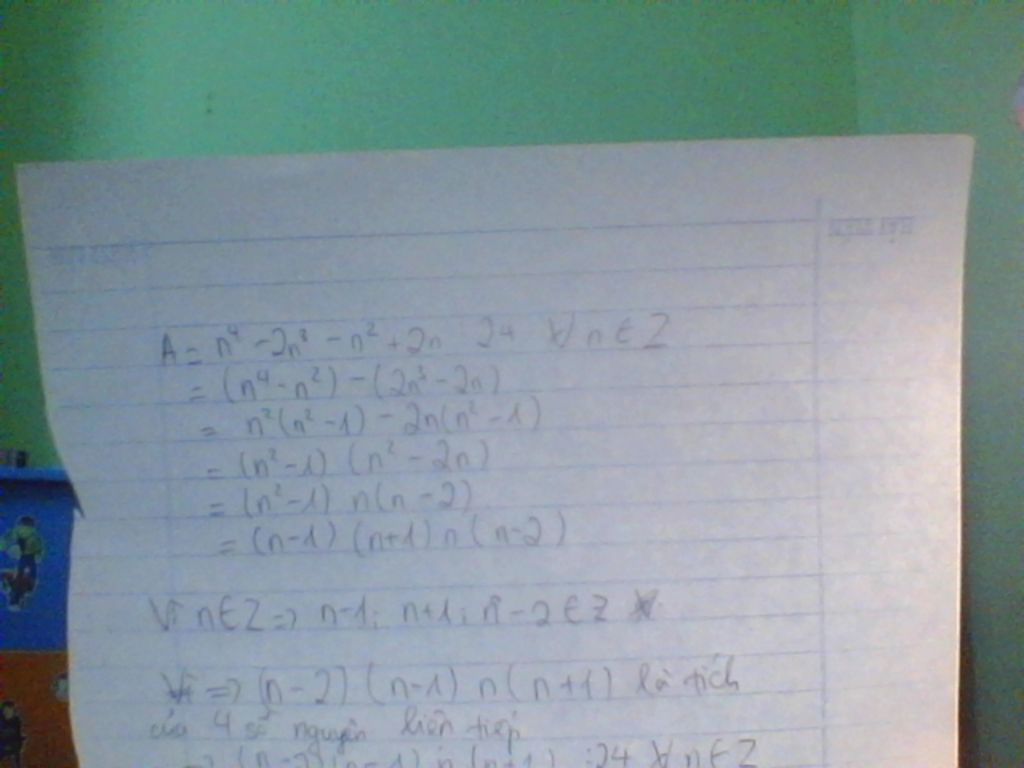 A = n⁴ - 2n³ - n² + 2n 24 ∀ n ∈ Z
= (n⁴ - n²) - (2n³ - 2n)
= n²(n² - 1) - 2n(n² - 1)
= (n² - 1) (n² - 2n)
= (n² - 1) n(n - 2)
= (n - 1) (n + 1) n (n - 2)
Vì n ∈ Z => n - 1; n + 1; n - 2 ∈ Z
=> (n - 2) (n - 1) n (n + 1) là tích
của 4 số nguyên liên tiếp
=> (n - 2) (n - 1) n (n + 1) ⋮ 24 ∀ n ∈ Z